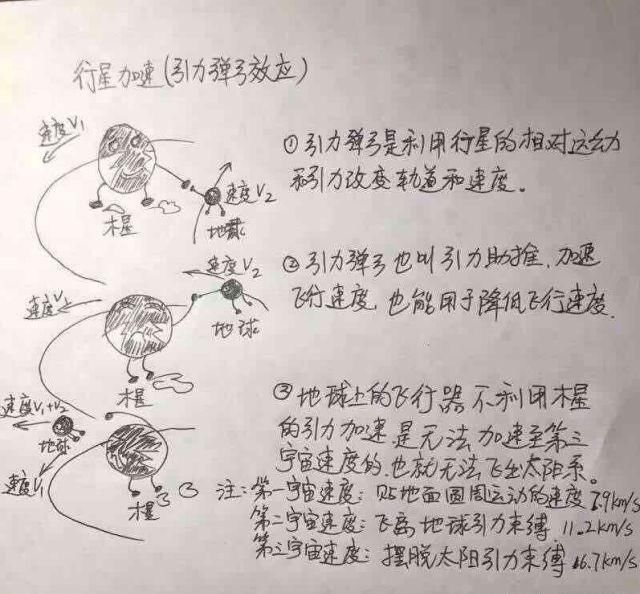 行星加速(引力弹弓效应)
速度V1
木星
速度V2
地球
①引力弹弓是利用行星的相对运动
和引力改变轨道和速度。
速度V2
速度V1
地球
木星
②引力弹弓也叫引力助推、加速
飞行速度,也能用于降低飞行速度.
速度V1+V2
地球
速度V1
木星
③地球上的飞行器不利用木星
的引力加速是无法加速至第三
宇宙速度的.也就无法飞出太阳系。
注:第一宇宙速度:贴地面圆周运动的速度 7.9km/s
第二宇宙速度:飞离地球引力束缚 11.2km/s
第三宇宙速度:摆脱太阳引力束缚 16.7km/s